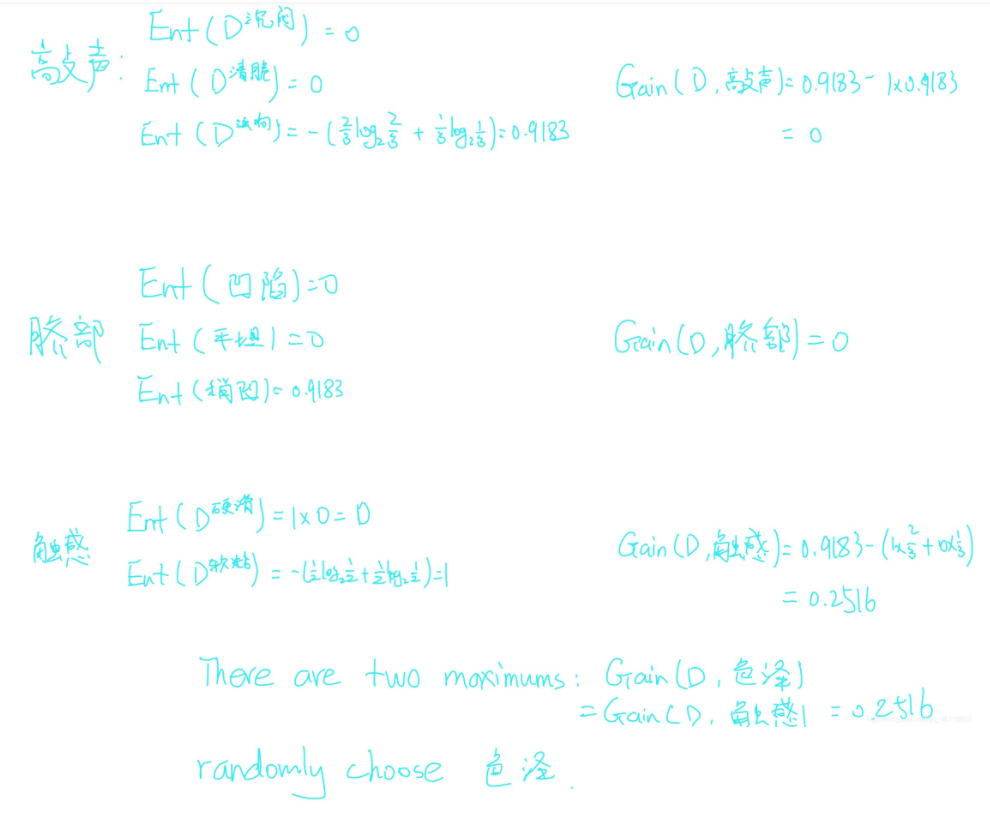 Ent(D^沉闷) = 0
高敲声: Ent(D^清脆) = 0
Gain(D, 高敲声) = 0.9183 - 1×0.9183
Ent(D^浊响) = -(2/3 log₂ 2/3 + 1/3 log₂ 1/3) = 0.9183
= 0
Ent(凹陷) = 0
脐部 Ent(平坦) = 0
Gain(D, 脐部) = 0
Ent(稍凹) = 0.9183
Ent(D^硬滑) = 1×0 = 0
触感
Gain(D, 触感) = 0.9183 - (1×2/3 + 0×1/3)
Ent(D^软粘) = -(1/2 log₂ 1/2 + 1/2 log₂ 1/2) = 1
= 0.2516
There are two maximums: Gain(D, 色泽)
= Gain(D, 触感) = 0.2516
randomly choose 色泽.